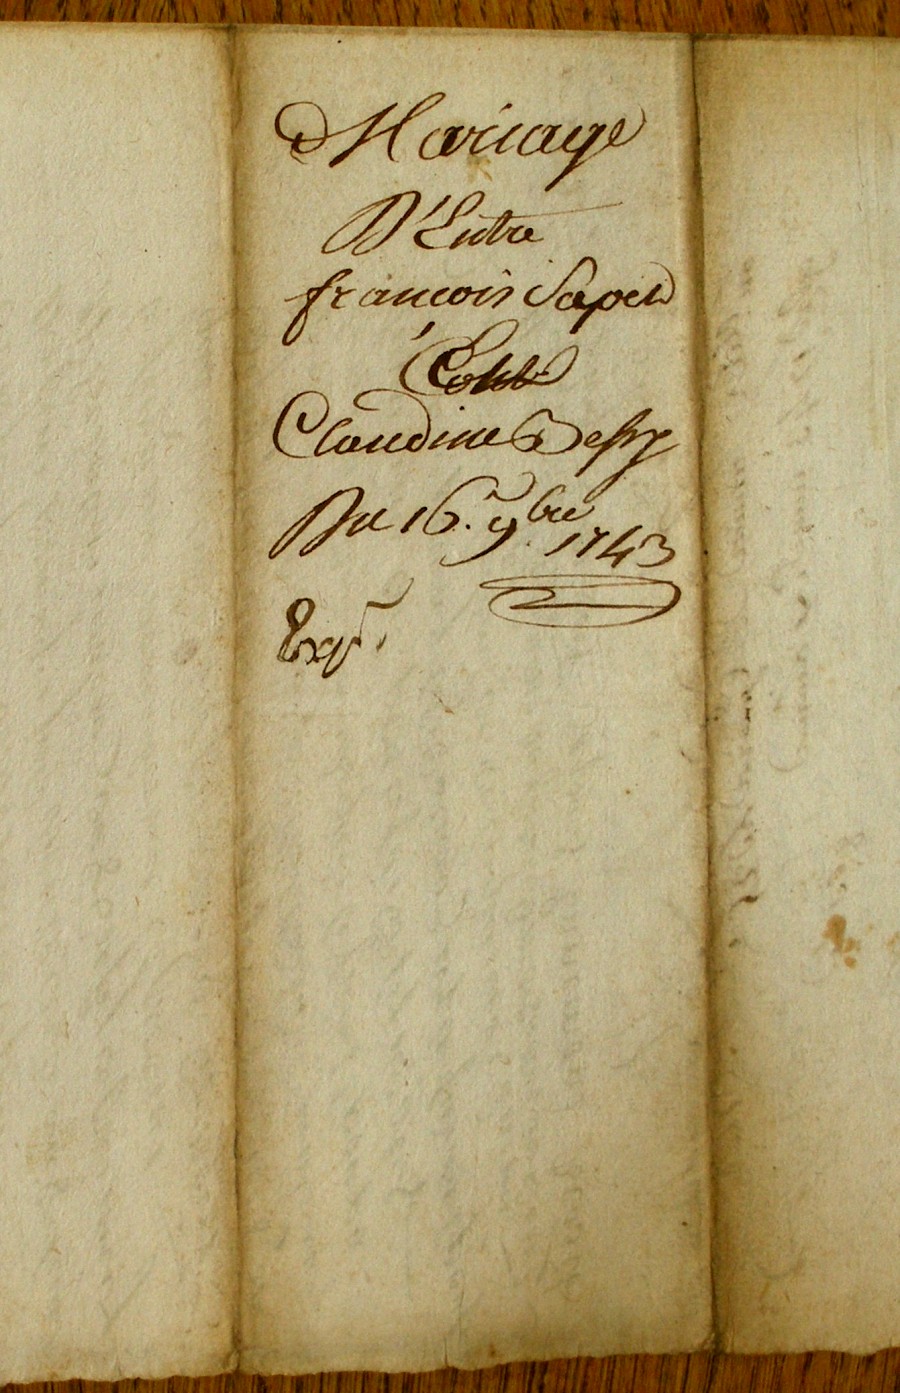 Mariage
D'Entre
francois Sapet
Et
Claudine Bessy
Du 16.e 9bre 1743
Expn.